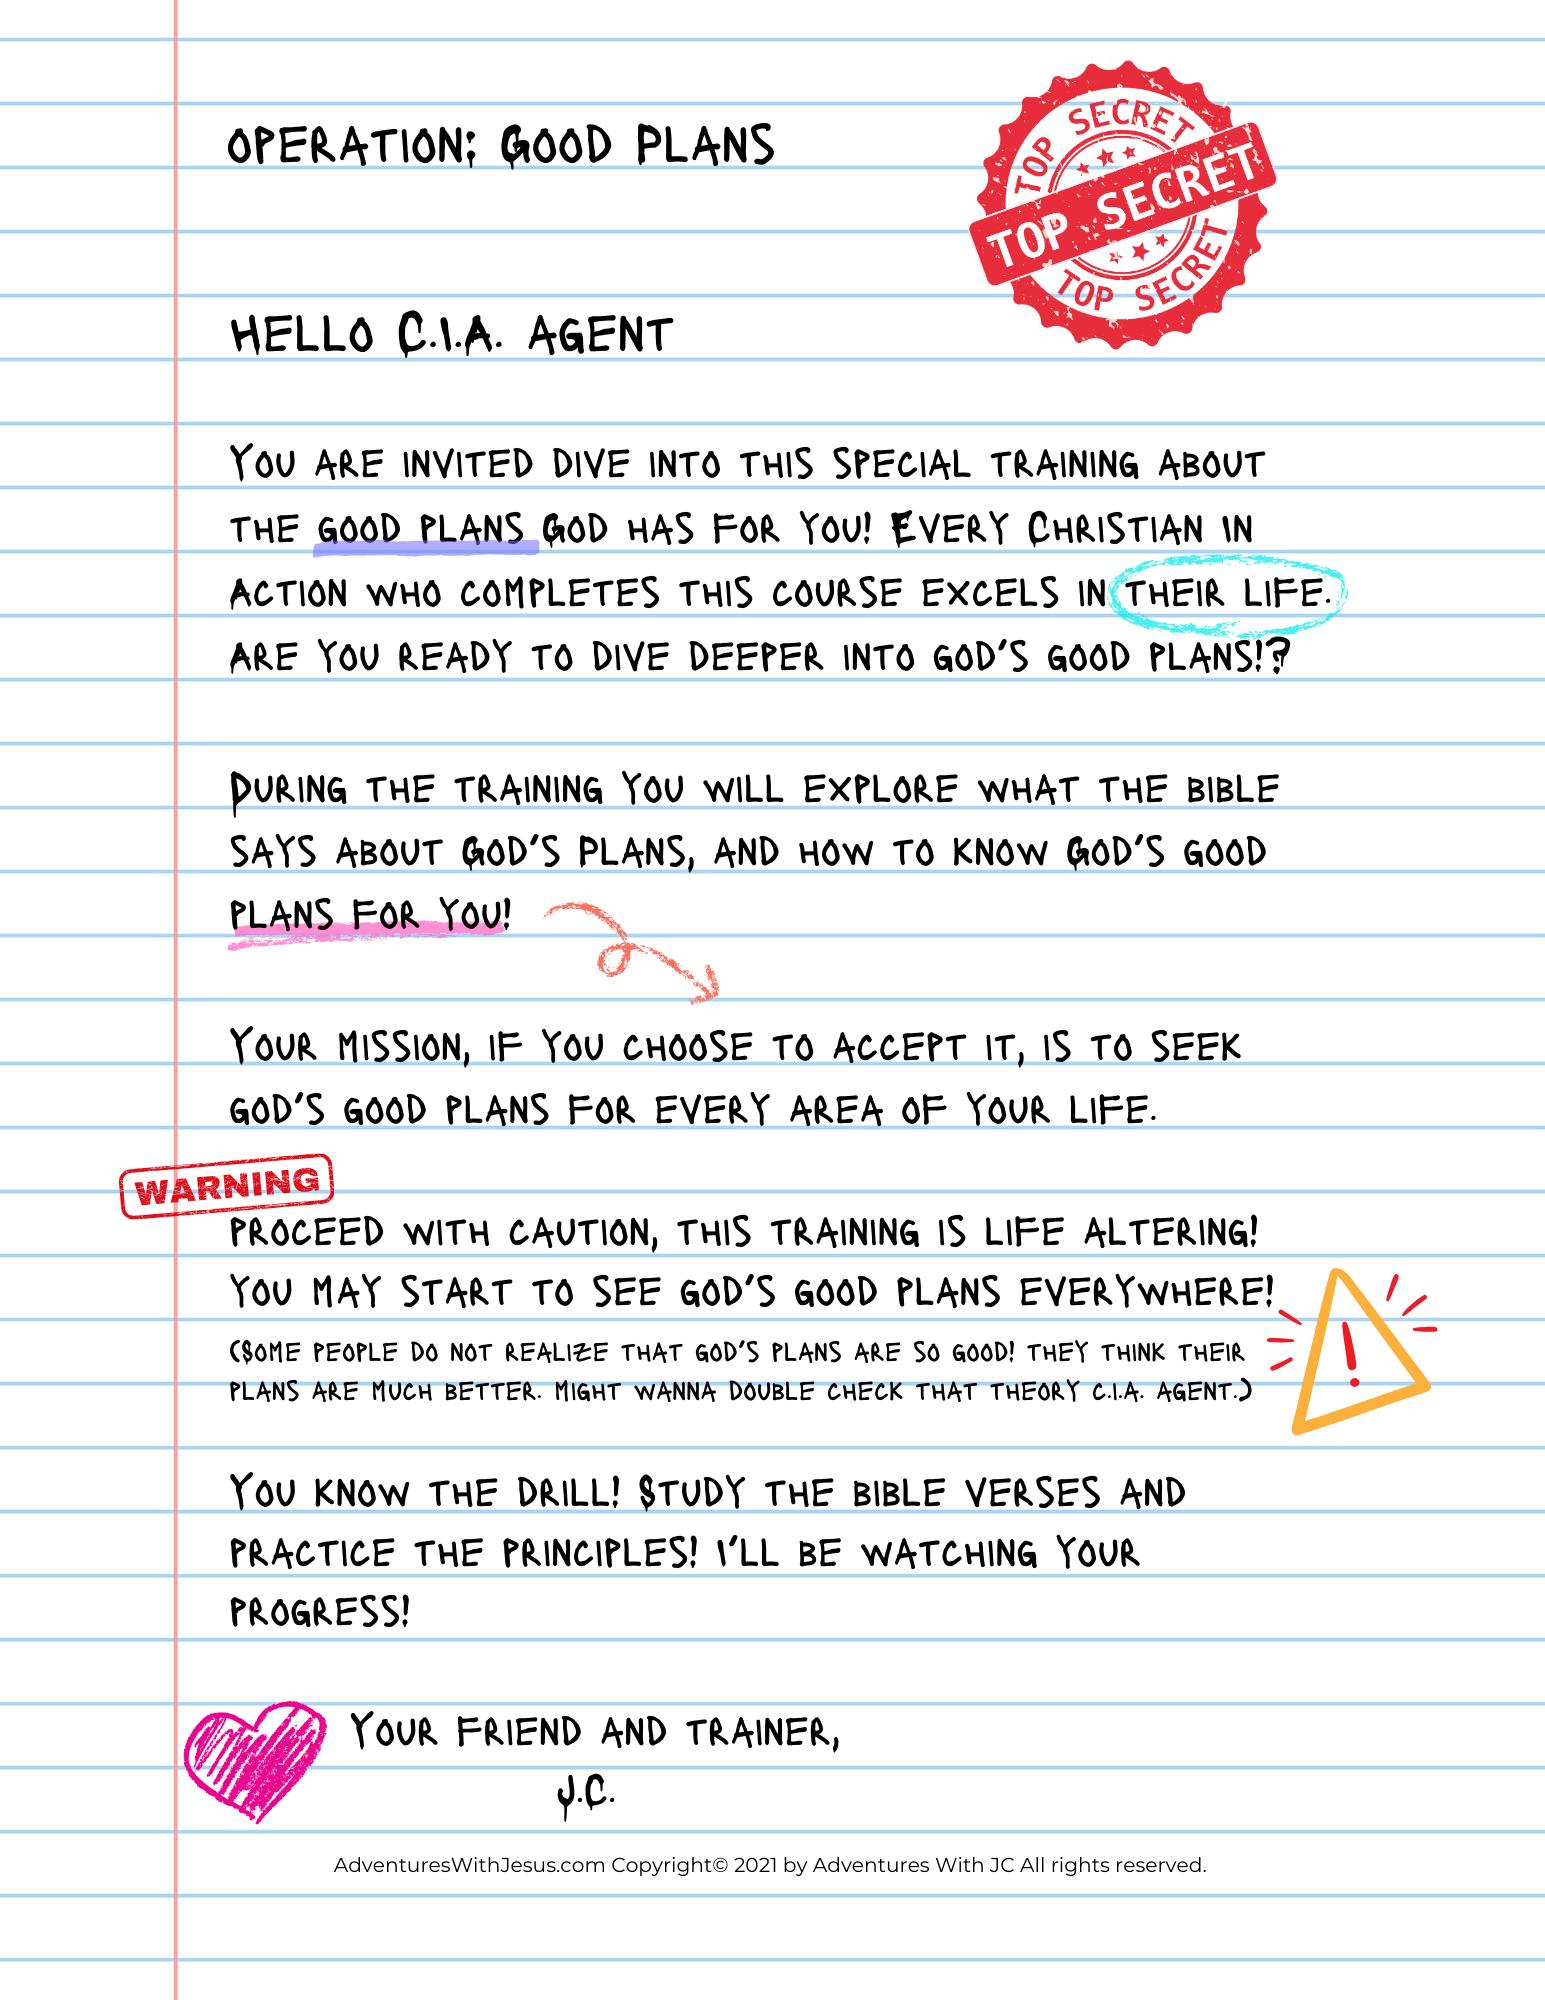 OPERATION: GOOD PLANS
TOP SECRET
TOP SECRET
TOP SECRET
HELLO C.I.A. AGENT
YOU ARE INVITED DIVE INTO THIS SPECIAL TRAINING ABOUT
THE GOOD PLANS GOD HAS FOR YOU! EVERY CHRISTIAN IN
ACTION WHO COMPLETES THIS COURSE EXCELS IN THEIR LIFE.
ARE YOU READY TO DIVE DEEPER INTO GOD'S GOOD PLANS!?
DURING THE TRAINING YOU WILL EXPLORE WHAT THE BIBLE
SAYS ABOUT GOD'S PLANS, AND HOW TO KNOW GOD'S GOOD
PLANS FOR YOU!
YOUR MISSION, IF YOU CHOOSE TO ACCEPT IT, IS TO SEEK
GOD'S GOOD PLANS FOR EVERY AREA OF YOUR LIFE.
WARNING
PROCEED WITH CAUTION, THIS TRAINING IS LIFE ALTERING!
YOU MAY START TO SEE GOD'S GOOD PLANS EVERYWHERE!
(SOME PEOPLE DO NOT REALIZE THAT GOD'S PLANS ARE SO GOOD! THEY THINK THEIR
PLANS ARE MUCH BETTER. MIGHT WANNA DOUBLE CHECK THAT THEORY C.I.A. AGENT.)
YOU KNOW THE DRILL! STUDY THE BIBLE VERSES AND
PRACTICE THE PRINCIPLES! I'LL BE WATCHING YOUR
PROGRESS!
YOUR FRIEND AND TRAINER,
J.C.
AdventuresWithJesus.com Copyright© 2021 by Adventures With JC All rights reserved.